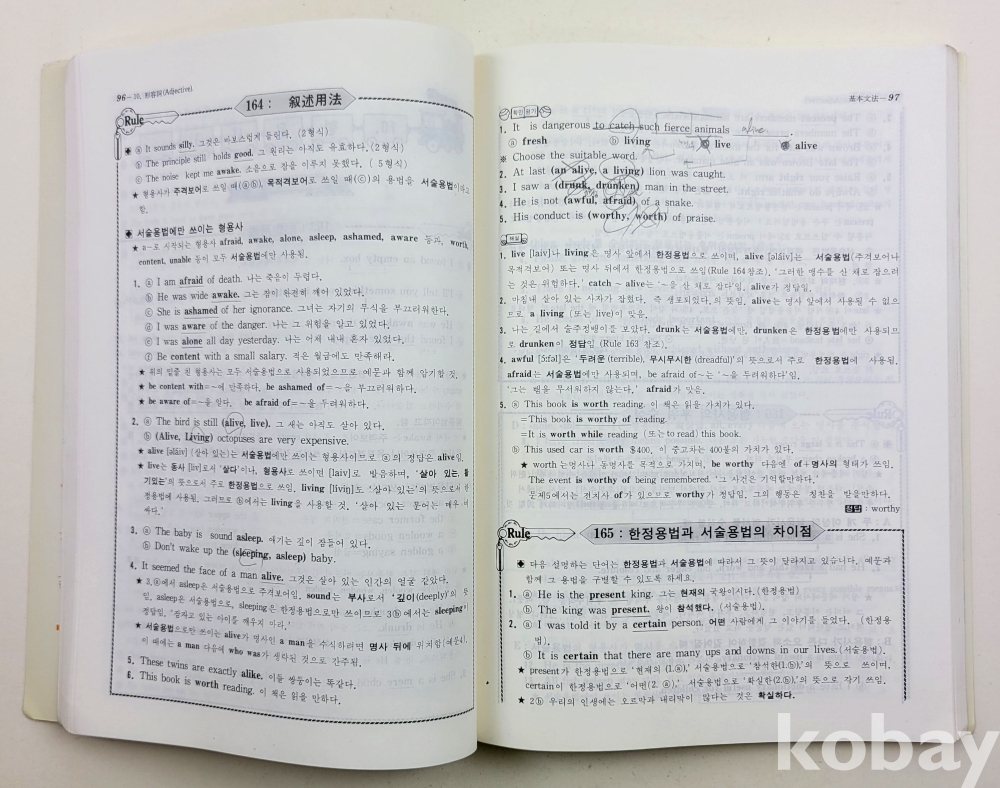 96 — 10. 形容詞(Adjective)
Rule
164 : 叙述用法
ⓐ It sounds silly. 그것은 바보스럽게 들린다. (2형식)
ⓑ The principle still holds good. 그 원리는 아직도 유효하다.(2형식)
ⓒ The noise kept me awake. 소음으로 잠을 이루지 못했다. ( 5형식)
★ 형용사가 주격보어로 쓰일 때(ⓐⓑ), 목적격보어로 쓰일 때(ⓒ)의 용법을 서술용법이라고
함.
서술용법에만 쓰이는 형용사
★ a-로 시작되는 형용사 afraid, awake, alone, asleep, ashamed, aware 등과, worth,
content, unable 등이 모두 서술용법에만 사용됨.
1. ⓐ I am afraid of death. 나는 죽음이 두렵다.
ⓑ He was wide awake. 그는 잠이 완전히 깨어 있었다.
ⓒ She is ashamed of her ignorance. 그녀는 자기의 무식을 부끄러워한다.
ⓓ I was aware of the danger. 나는 그 위험을 알고 있었다.
ⓔ I was alone all day yesterday. 나는 어제 내내 혼자 있었다.
ⓕ Be content with a small salary. 적은 월급에도 만족해라.
★ 위의 밑줄 친 형용사는 모두 서술용법으로 사용되었으므로 예문과 함께 암기할 것.
★ be content with=~에 만족하다. be ashamed of=~을 부끄러워하다.
★ be aware of=~을 알다. be afraid of=~을 두려워하다.
2. ⓐ The bird is still (alive, live). 그 새는 아직도 살아 있다.
ⓑ (Alive, Living) octopuses are very expensive.
★ alive [əláiv] (살아 있는)는 서술용법에만 쓰이는 형용사이므로 ⓐ의 정답은 alive임.
★ live는 동사 [liv]로서 '살다'이나, 형용사로 쓰이면 [laiv]로 발음하며, '살아 있는, 활
기있는'의 뜻으로서 주로 한정용법으로 쓰임. living [líviŋ]도 '살아 있는'의 뜻으로서 한
정용법에 사용됨. 그러므로 ⓑ에서는 living을 사용할 것. '살아 있는 문어는 매우 비
싸다.'
3. ⓐ The baby is sound asleep. 애기는 깊이 잠들어 있다.
ⓑ Don't wake up the (sleeping, asleep) baby.
4. It seemed the face of a man alive. 그것은 살아 있는 인간의 얼굴 같았다.
★ 3.ⓐ에서 asleep은 서술용법으로 주격보어임. sound는 부사로서 '깊이(deeply)'의 뜻
임. asleep은 서술용법으로, sleeping은 한정용법으로만 쓰이므로 3ⓑ에서는 sleeping이
정답임. '잠자고 있는 아이를 깨우지 마라.'
★ 서술용법으로만 쓰이는 alive가 명사인 a man을 수식하려면 명사 뒤에 위치함(예문4).
이 때에는 a man 다음에 who was가 생략된 것으로 간주됨.
5. These twins are exactly alike. 이들 쌍둥이는 똑같다.
6. This book is worth reading. 이 책은 읽을 만하다.
基本文法 — 97
확인 평가
1. It is dangerous to catch such fierce animals alive.
ⓐ fresh ⓑ living ⓒ live ⓓ alive
※ Choose the suitable word.
2. At last (an alive, a living) lion was caught.
3. I saw a (drunk, drunken) man in the street.
4. He is not (awful, afraid) of a snake.
5. His conduct is (worthy, worth) of praise.
해설
1. live [laiv]나 living은 명사 앞에서 한정용법으로 쓰이며, alive [əláiv]는 서술용법(주격보어나
목적격보어) 또는 명사 뒤에서 한정용법으로 쓰임(Rule 164참조). '그러한 맹수를 산 채로 잡으려
는 것은 위험하다.' catch ~ alive는 '~을 산 채로 잡다'임. alive가 정답임.
2. 마침내 살아 있는 사자가 잡혔다. 즉 생포되었다.의 뜻임. alive는 명사 앞에서 사용될 수 없으
므로 a living (또는 live)이 맞음.
3. 나는 길에서 술주정뱅이를 보았다. drunk는 서술용법에만, drunken은 한정용법에만 사용되므
로 drunken이 정답임 (Rule 163 참조).
4. awful [ɔ́:fəl]은 '두려운(terrible), 무시무시한 (dreadful)'의 뜻으로서 주로 한정용법에 사용됨.
afraid는 서술용법에만 사용되며, be afraid of~는 '~을 두려워하다'임.
'그는 뱀을 무서워하지 않는다.' afraid가 맞음.
5. ⓐ This book is worth reading. 이 책은 읽을 가치가 있다.
=This book is worthy of reading.
=It is worth while reading (또는 to read) this book.
ⓑ This used car is worth $400. 이 중고차는 400불의 가치가 있다.
★ worth 는명사나 동명사를 목적으로 가지며, be worthy 다음엔 of+명사의 형태가 쓰임.
The event is worthy of being remembered. '그 사건은 기억할만하다.'
문제5에서는 전치사 of가 있으므로 worthy가 정답임. 그의 행동은 칭찬을 받을만하다.
정답 : worthy
Rule
165 : 한정용법과 서술용법의 차이점
다음 설명하는 단어는 한정용법과 서술용법에 따라서 그 뜻이 달라지고 있습니다. 예문과
함께 그 용법을 구별할 수 있도록 하세요.
1. ⓐ He is the present king. 그는 현재의 국왕이시다.(한정용법)
ⓑ The king was present. 왕이 참석했다. (서술용법).
2. ⓐ I was told it by a certain person. 어떤 사람에게 그 이야기를 들었다. (한정용
법).
ⓑ It is certain that there are many ups and downs in our lives.(서술용법).
★ present가 한정용법으로 '현재의 (1.ⓐ),' 서술용법으로 '참석한(1.ⓑ),'의 뜻으로 쓰이며,
certain이 한정용법으로 '어떤(2. ⓐ),' 서술용법으로 '확실한(2.ⓑ),'의 뜻으로 각기 쓰임.
★ 2ⓑ 우리의 인생에는 오르막과 내리막이 많다는 것은 확실하다.
kobay